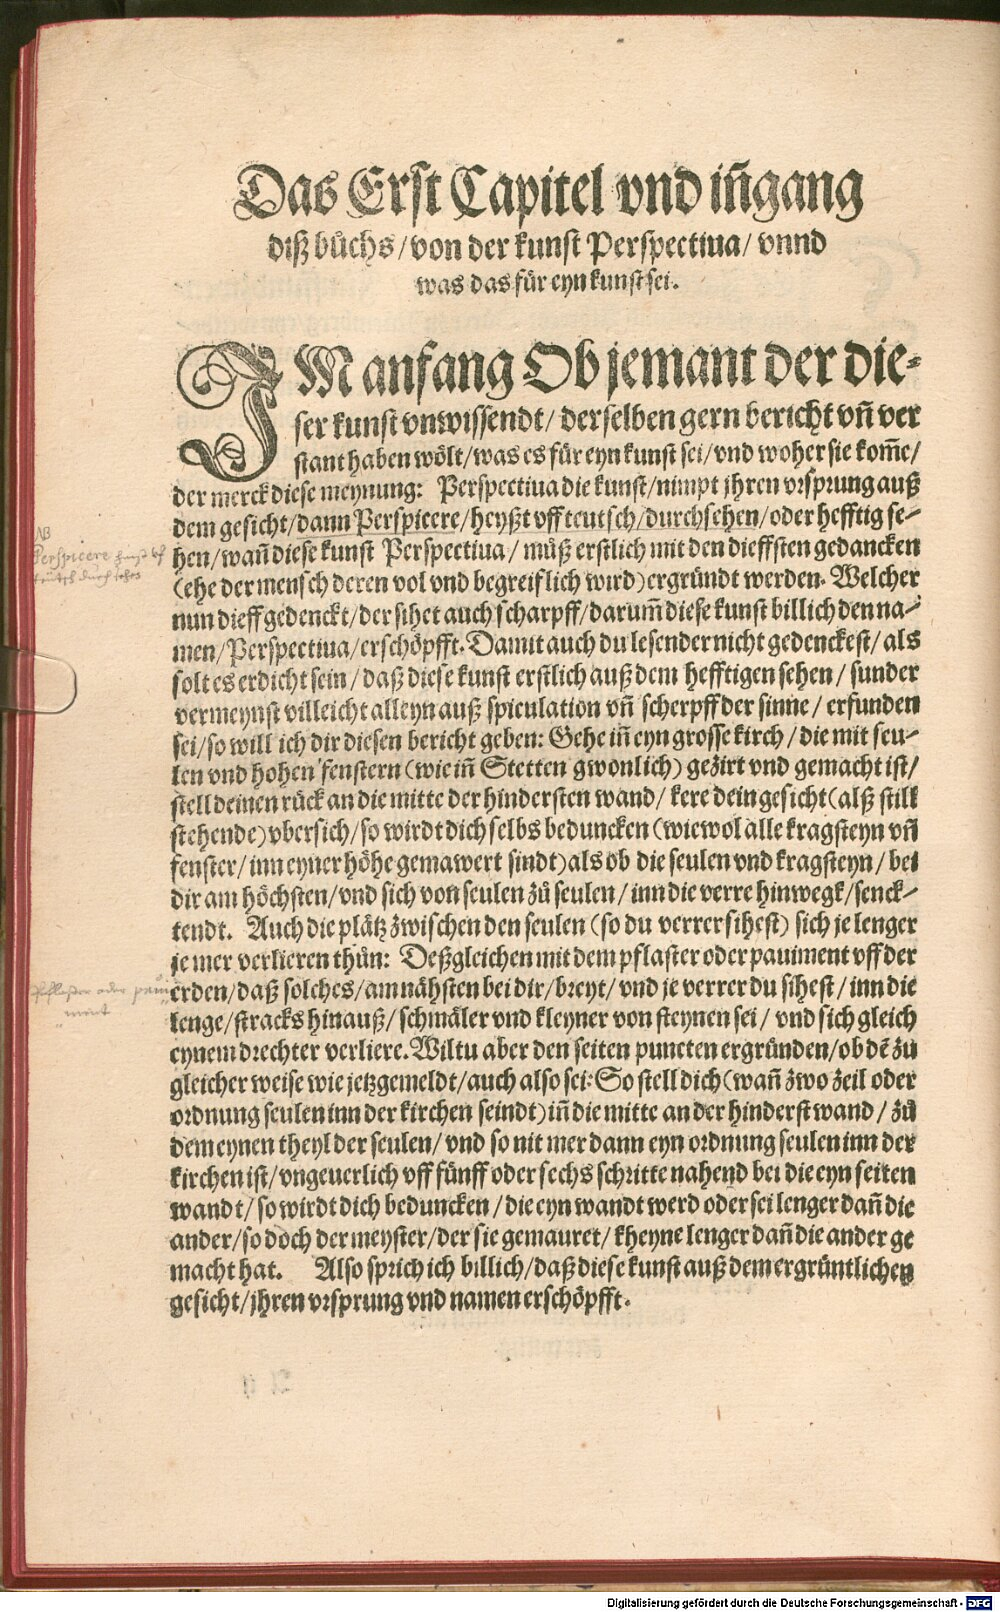 Das Erst Capitel vnd iñgang
diß bůchs/von der kunst Perspectiua/ vnnd
was das für eyn kunst sei.
IM anfang Ob jemant der die-
ser kunst vnwissendt/ derselben gern bericht vñ ver
stant haben wölt/was es für eyn kunst sei/vnd woher sie kom̃e/
der merck diese meynung: Perspectiua die kunst/nimpt jhren vrsprung auß
dem gesicht/dann Perspicere/heyßt vff teutsch/durchsehen/oder hefftig se-
hen/wañ diese kunst Perspectiua/ můß erstlich mit den dieffsten gedancken
(ehe der mensch deren vol vnd begreiflich wird)ergründt werden. Welcher
nun dieff gedenckt/der sihet auch scharpff/darum̃ diese kunst billich den na-
men/Perspectiua/erschöpfft. Damit auch du lesender nicht gedenckest/ als
solt es erdicht sein/daß diese kunst erstlich auß dem hefftigen sehen/ sunder
vermeynst villeicht alleyn auß spiculation vñ scherpff der sinne/ erfunden
sei/so will ich dir diesen bericht geben: Gehe iñ eyn grosse kirch/die mit seu-
len vnd hohen fenstern (wie iñ Stetten gwonlich) gezirt vnd gemacht ist/
stell deinen rück an die mitte der hindersten wand/ kere dein gesicht (alß still
stehende)vbersich/so wirdt dich selbs beduncken (wiewol alle kragsteyn vñ
fenster/inn eyner höhe gemawert sindt)als ob die seulen vnd kragsteyn/bei
dir am höchsten/vnd sich von seulen zů seulen/inn die verre hinwegk/senck-
tendt. Auch die plätz zwischen den seulen (so du verrer sihest) sich je lenger
je mer verlieren thůn: Deßgleichen mit dem pflaster oder pauiment vff der
erden/daß solches/am nähsten bei dir/breyt/vnd je verrer du sihest/inn die
lenge/stracks hinauß/schmäler vnd kleyner von steynen sei/ vnd sich gleich
eynem drechter verliere. Wiltu aber den seiten puncten ergründen/ob dẽ zů
gleicher weise wie jetzgemeldt/auch also sei: So stell dich(wañ zwo zeil oder
ordnung seulen inn der kirchen seindt)iñ die mitte an der hinderst wand/zů
dem eynen theyl der seulen/ vnd so nit mer dann eyn ordnung seulen inn der
kirchen ist/vngeuerlich vff fünff oder sechs schritte nahend bei die eyn seiten
wandt/so wirdt dich beduncken/die eyn wandt werd oder sei lenger dañ die
ander/so doch der meyster/der sie gemauret/kheyne lenger dañ die ander ge
macht hat. Also sprich ich billich/daß diese kunst auß dem ergrüntlichen
gesicht/jhren vrsprung vnd namen erschöpfft.
NB
Perspicere heyst vf
teütsch durch sehen
Pflaster oder paui
ment
Digitalisierung gefördert durch die Deutsche Forschungsgemeinschaft - DFG